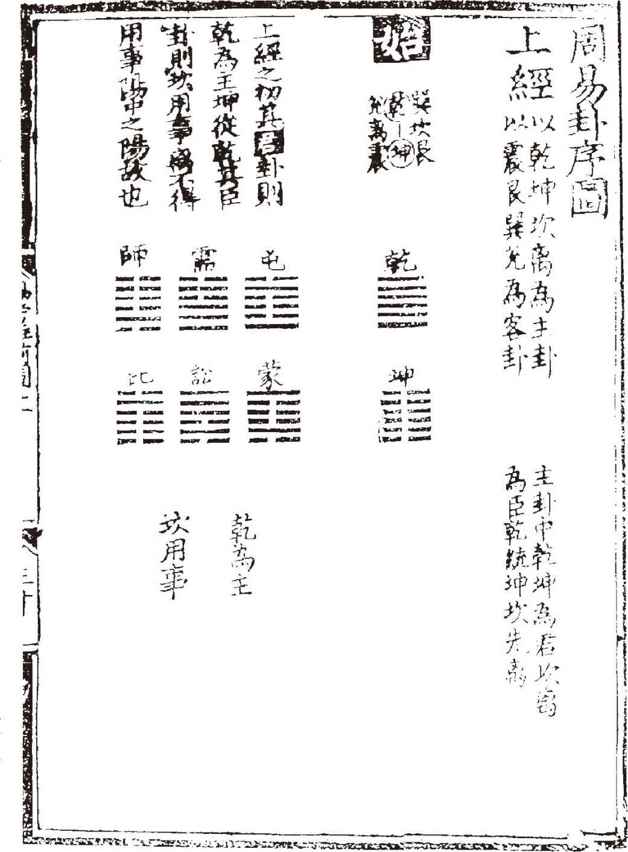 周易卦序圖
上經
以乾坤坎离為主卦
以震艮巽兌為客卦
主卦中乾坤為君坎离
為臣乾統坤坎先离
始
巽坎艮
乾坤
兌离震
乾
坤
上經之初其君卦則
乾為主坤從乾其臣
卦則坎用事离不得
用事陽中之陽故也
屯
需
師
蒙
訟
比
乾為主
坎用事